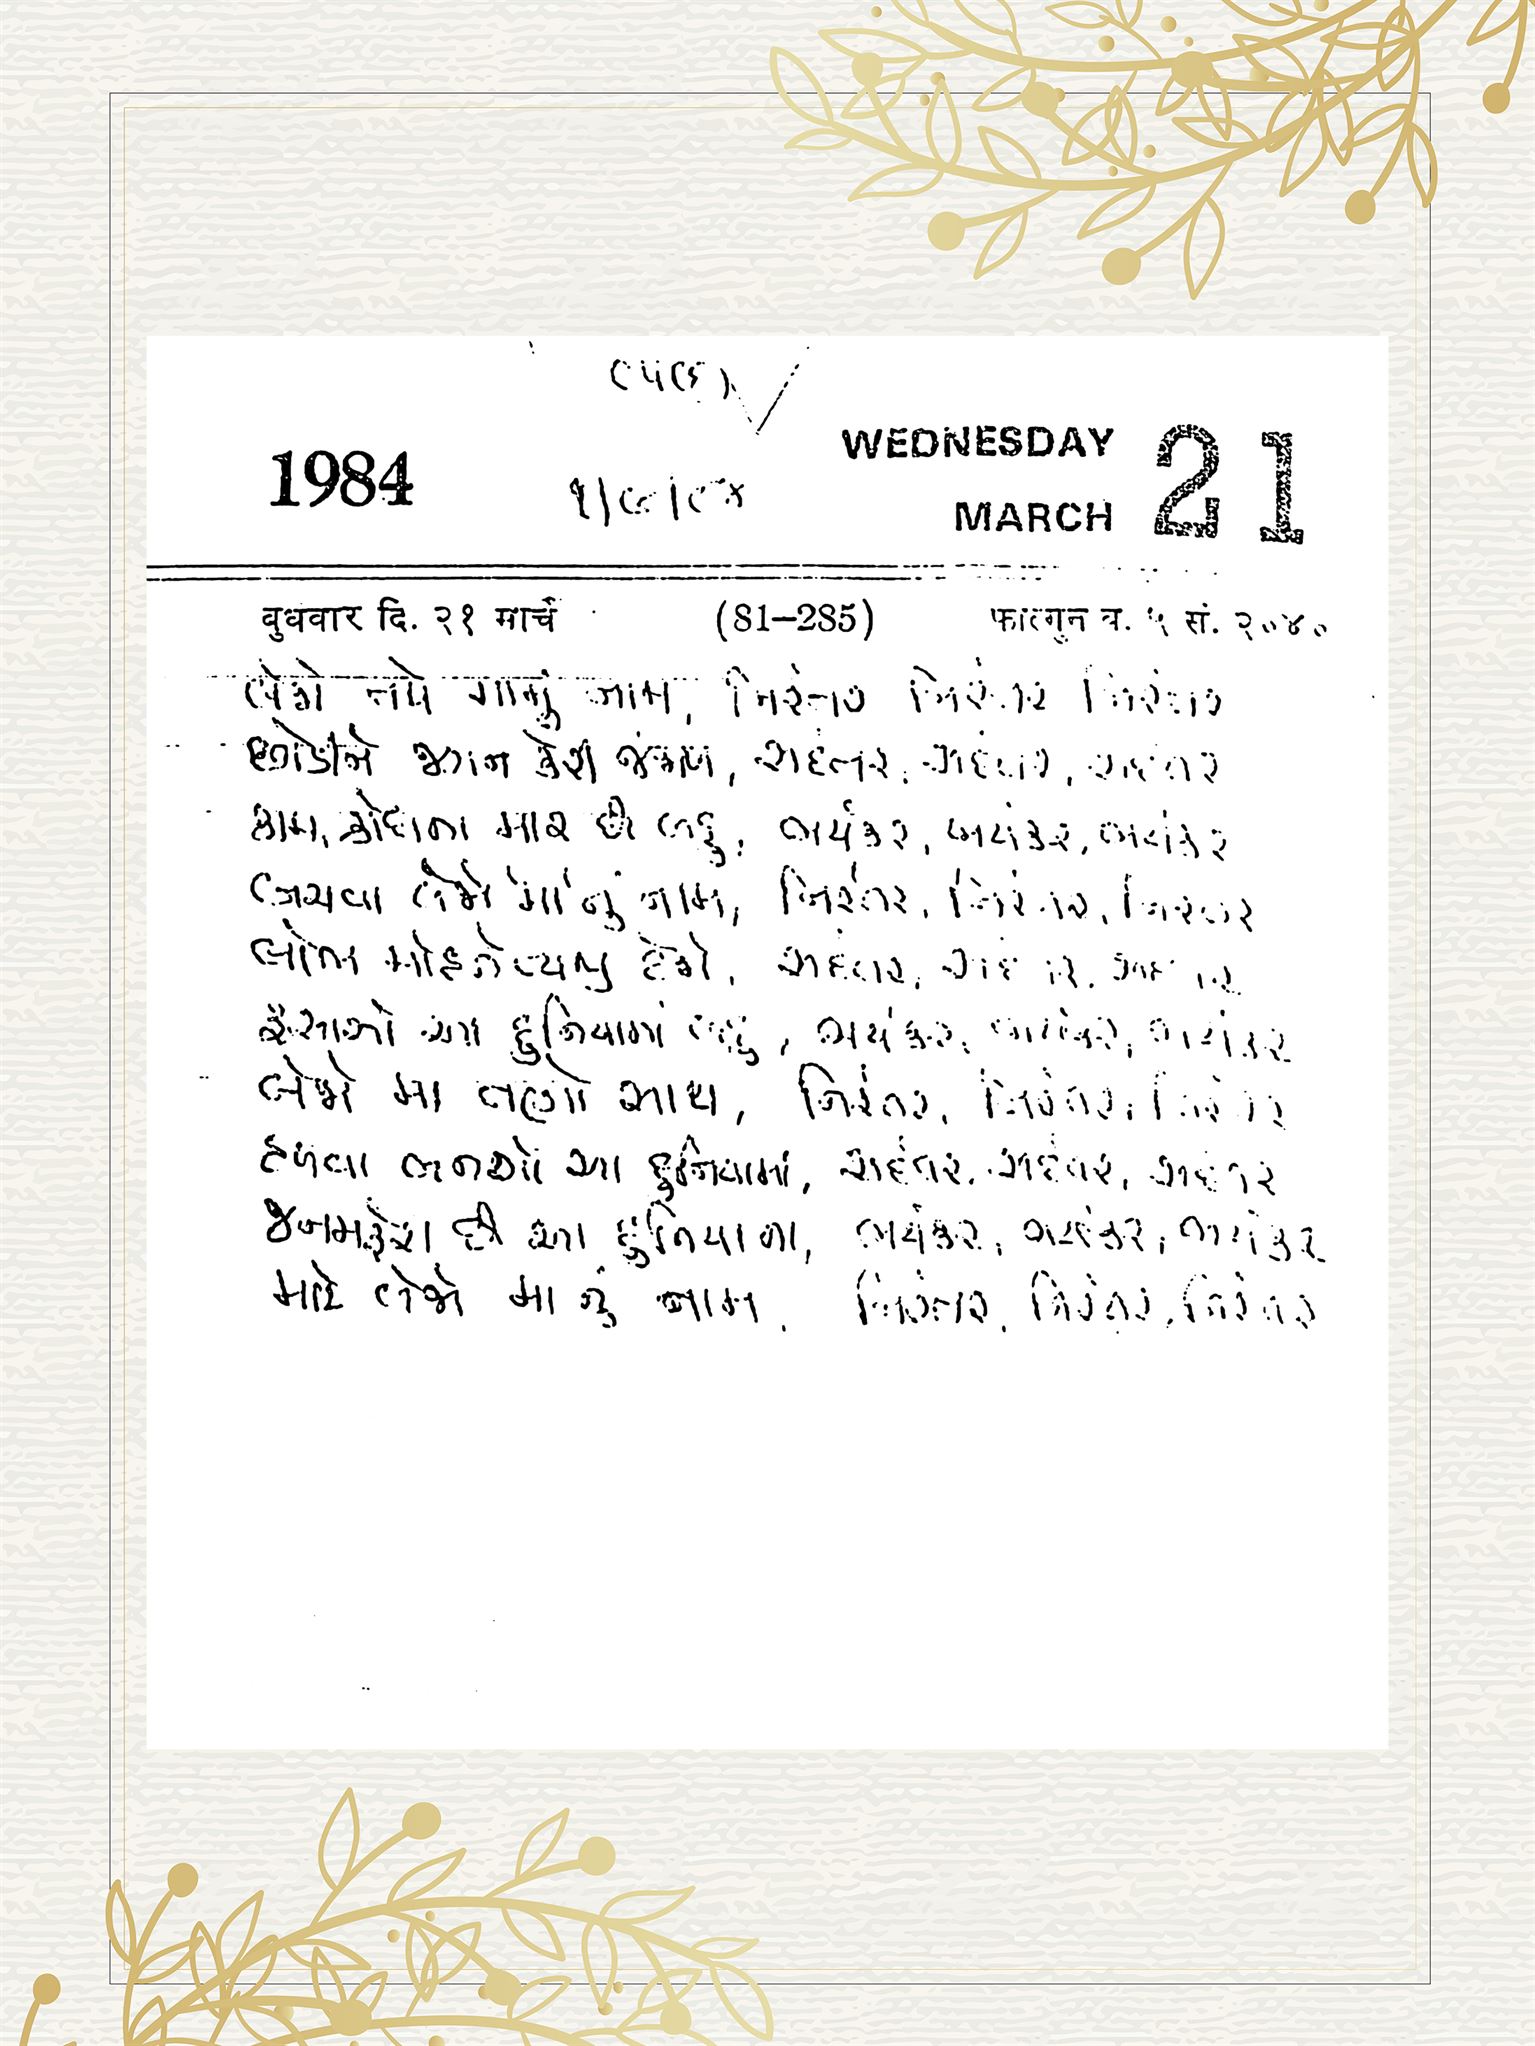 (૫૯)
1984
૧/૯/૮૪
WEDNESDAY
MARCH
21
बुधवार दि. २१ मार्च (81–285) फाल्गुन व. ५ सं. २०४०
લેજો તમે માનું નામ, નિરંતર નિરંતર નિરંતર
છોડીને જગત કેરી જંજાળ, સદંતર, સદંતર, સદંતર
કામ, ક્રોધના માર છે બહુ, ભયંકર, ભયંકર, ભયંકર
બચવા લેજો 'મા'નું નામ, નિરંતર, નિરંતર, નિરંતર
લોભ મોહને ત્યજી દેજો, સદંતર, સદંતર, સદંતર
ફસાશો આ દુનિયામાં બહુ, ભયંકર, ભયંકર, ભયંકર
લેજો મા તણો સાથ, નિરંતર, નિરંતર, નિરંતર
હળવા બનશો આ દુનિયામાં, સદંતર, સદંતર, સદંતર
જનમફેરા છે આ દુનિયાના, ભયંકર, ભયંકર, ભયંકર
માટે લેજો મા નું નામ, નિરંતર, નિરંતર, નિરંતર